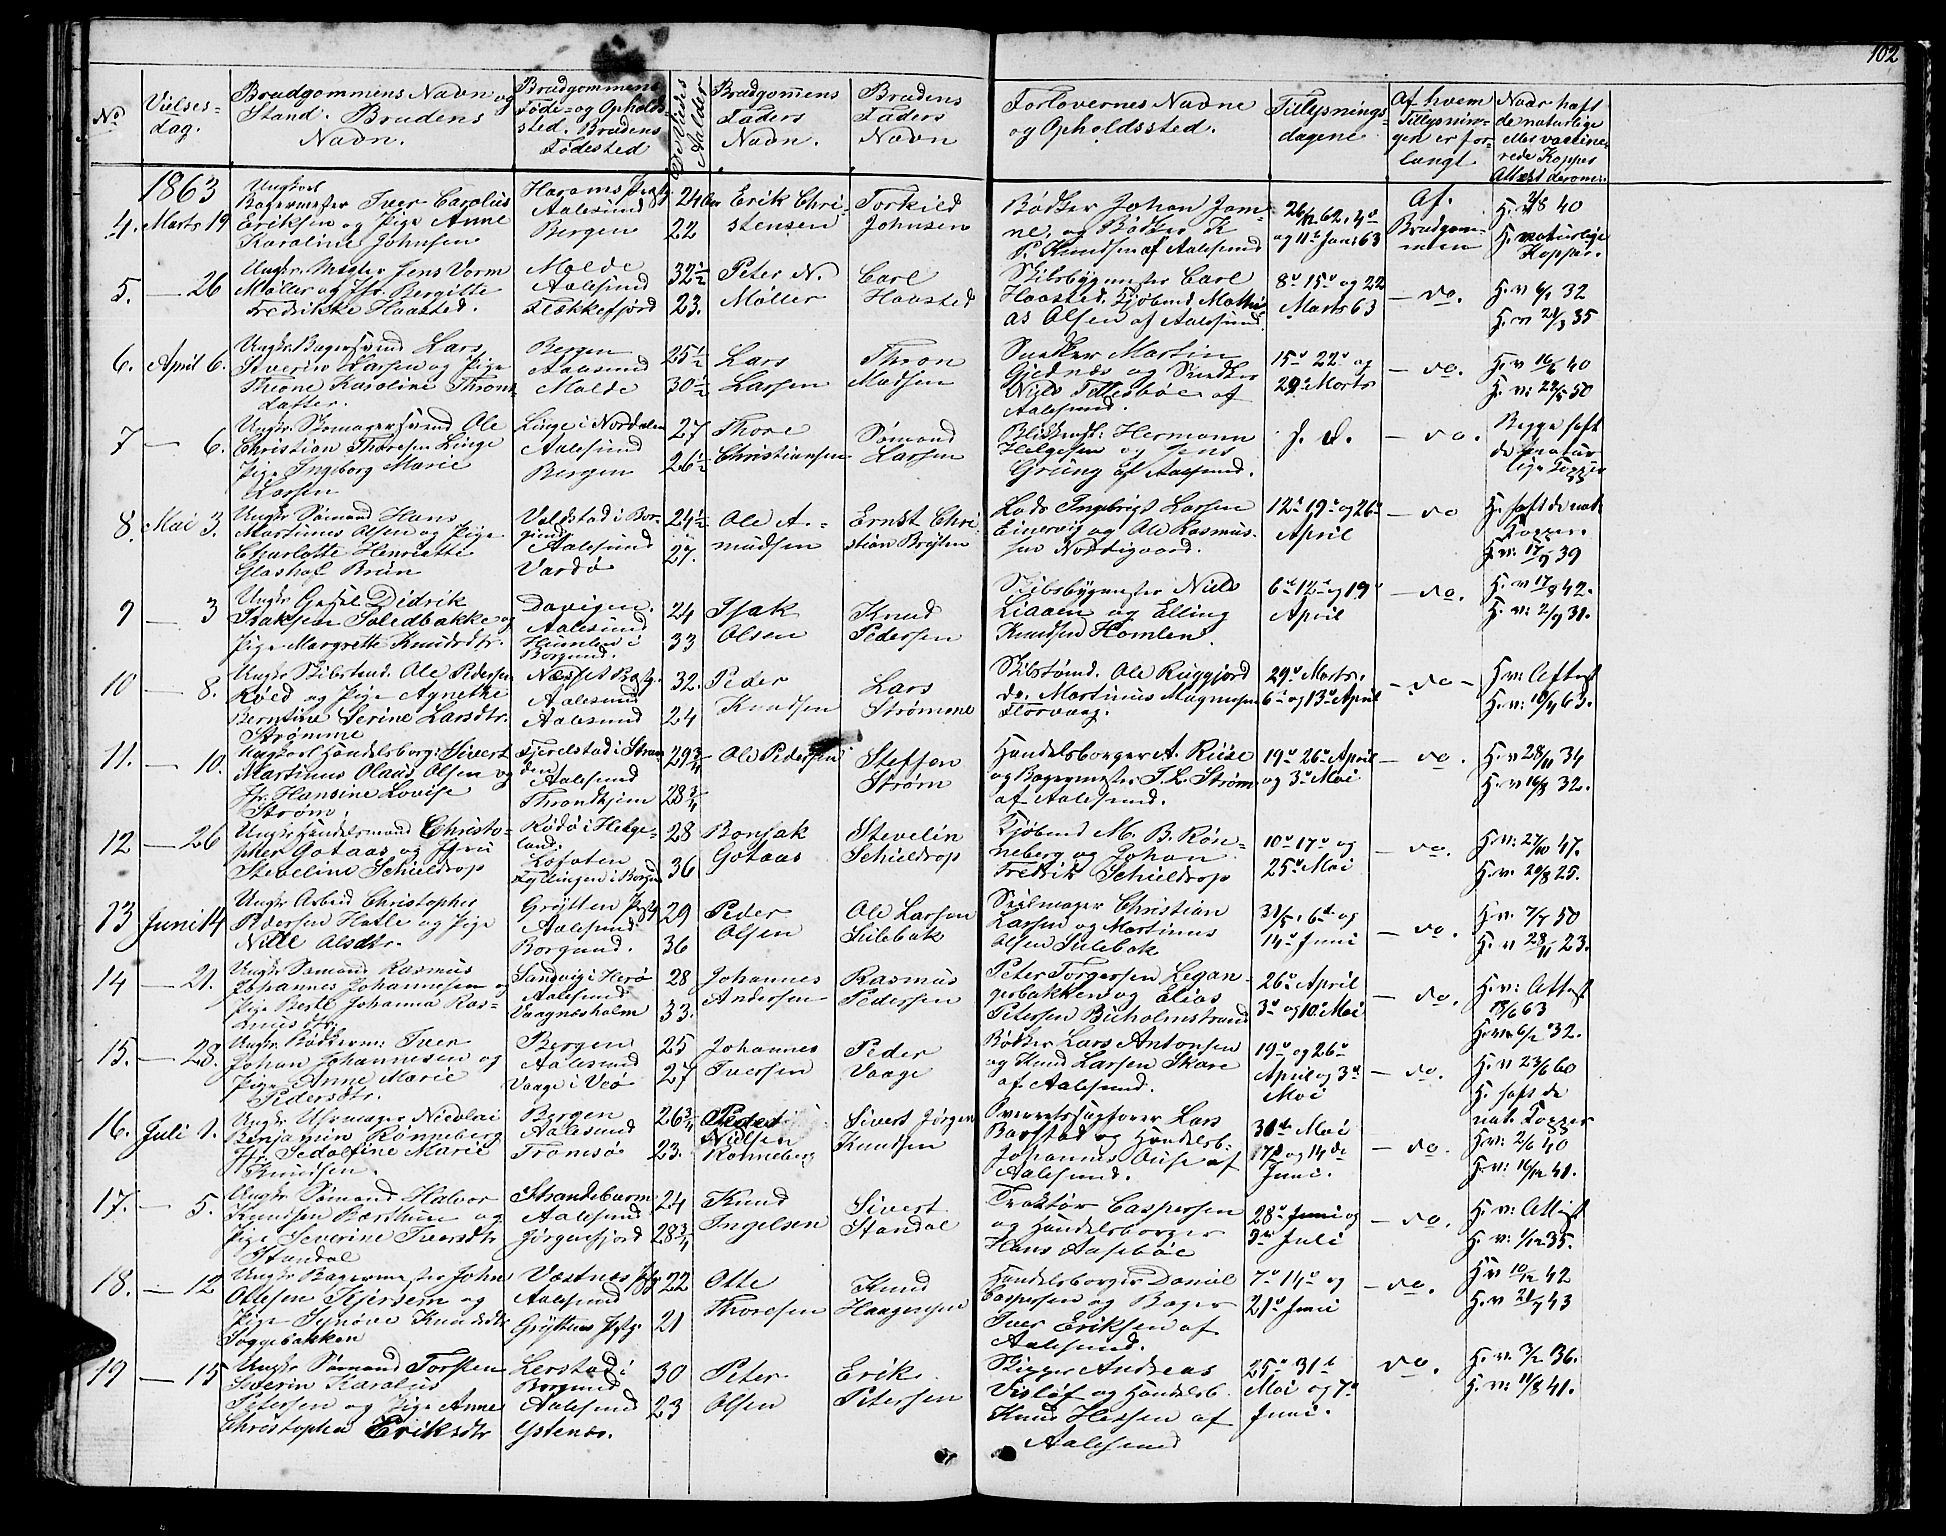 102
No
Vielses-
dag.
Brudgommens Navn og
Stand. Brudens
Navn.
Brudgommens
Føde- og Opholds-
sted. Brudens
Fødested
De Viedes
Aalder
Brudgommens
Faders
Navn.
Brudens
Faders
Navn
Forlovernes Navne
og Opholdssted.
Tillysnings-
dagene
Af hvem
Tillysnin-
gen er for-
langt
Naar haft
de naturlige
eller vaccine-
rede Kopper
Attest derom.
1863
4. Marts 19
Ungkarl
Bagermester Iver Carolius
Eriksen og Pige Anne
Karoline Johnsen
Harams Prgj
Aalesund
Bergen
24
22
Erik Chri-
stensen
Torkild
Johnsen
Bødker Johan Jam-
ne, og Bødker K
P. Knudsen af Aalesund
26/12 62, 4de
og 11te Jan: 63
Af
Brudgom-
men
H. naturlige
Kopper.
5. — 26
Ungkr. Mægler Jens Worm
Møller og Jfr. Bergitte
Fredrikke Haasted.
Molde
Aalesund
Flekkefjord
32½
23.
Peter N.
Møller
Carl
Haasted
Skibsbygmester Carl
Haasted. Kjøbmd Mathi-
as Olsen af Aalesund
8de 15de og 22
Marts 63
— do.
H. v 6/1 32
H. v 21/3 35
6. April 6.
Ungkr. Bagersvend Lars
Severin Larsen og Pige
Throne Karoline Throns-
datter.
Bergen
Aalesund
Molde
25½
30½
Lars
Larsen
Thron
Madsen
Snedker Martin
Gjednæs og Snedker
Niels Fellesbøe af
Aalesund.
15de 22de og
29de Marts
— do.
H. v 16/6 40
H. v: 22/5 50
7 — 6.
Ungkr. Skomagersvend Ole
Christian Thoresen Linge
Pige Ingeborg Marie
Larsen
Linge i Nordalen
Aalesund
Bergen
27
26½
Thore
Christiansen
Sømand
Larsen
Hermann
Helgesen og Jens
Grüng af Aalesund.
f. d.
— do.
Begge haft
de natur-
lige Kopper
8. Mai 3.
Ungkr. Sømand Hans
Martinus Olsen og Pige
Charlotte Henriette
Glashof Brun
Valdstad i Bor-
gund
Aalesund
Vardø
24½
27.
Ole A.-
mudsen
Ernst Chri-
stian Brylen
Lods Ingebrigt Larsen
Einervig og Ole Rasmus-
sen Nordtigaard.
12te 19de og 26de
April
— do
H. haft de nat-
Kopper.
H. v: 17/9 39
9 — 3
Ungkr. Didrik
Isaksen Solidbakke og
Pige Margrethe Knudsdtr.
Davigen.
Aalesund
Humlen i
Borgund.
24
33
Isak
Olsen
Knud
Pedersen
Skibsbygmester Niels
Liaaen og Elling
Knudsen Homlen
6te 12te og 19de
April
— do.
H. v 17/8 42.
H. v: 2/9 31.
10 — 8.
Ungkr. Ole Pedersen
Røed og Pige Agnethe
Berntine Serine Larsdtr.
Strømme
Næsset Prgj.
Aalesund
Aalesund
32.
24
Peder
Knudsen
Lars
Strømme
Skibstømd. Ole Ruggjord
do. Martinus Magnusen
Florvaag.
29de Marts.
6te og 13de April
— do —
H. v: Attest
H. v: 10/4 63.
11. — 10.
Ungkarl Handelsborg: Sivert
Martinus Olaus Olsen og
Jfr. Hansine Lovise
Strøm
Fjerelstad i Stran-
den
Aalesund
Throndhjem
29¾
28¾
Ole Pedersen
Steffen
Strøm
Handelsborger A. Riise
og Bagermester J. L. Strøm
af Aalesund.
19de 26de April
og 3de Mai
— do.
H. v 28/11 34
H. v 16/8 32.
12 — 26
Ungkr. Handelsmand Christo-
pher Gotaas og Jfru
Steveline Schieldrop
Rødø i Helge-
land.
Lofoten
28
36
Bonsak
Gotaas
Stevelin
Schieldrop
Kjøbmd M. B. Røn-
neberg og Johan
Fredrik Schieldrop
10de 17de og
25de Mai
— do.
H. v: 27/10 47.
H. v. 20/8 25.
13 Juni 14
Ungkr. Arbeid Christopher
Pedersen Hatle og Pige
Nille Olsdtr.
Grytten Prgj
Aalesund
Borgund.
29
36
Peder
Olsen
Ole Larsen
Sulebak
Seilmager Christian
Larsen og Martinus
Olsen Sulebak
31/5, 6te og
14de Juni
— do.
H. v. 7/7 50
H. v 28/11 23.
14 — 21.
Ungkr. Sømand Rasmus
Johannes Johannesen og
Pige Berte Johanna Ras-
musdtr.
Sandvig i Herø
Aalesund
Vaagnæsholm
28
33.
Johannes
Andersen
Rasmus
Pedersen
Peter Torgersen Legan-
gerbakken og Elias
Petersen Buholmstrand
26de April
3de og 10de Mai
— do.
H. v: Attest
18/6 63
H. v. 6/2 32.
15. — 28.
Ungkr. Bødkerm: Iver
Johan Johannesen og
Pige Anne Marie
Pedersdtr.
Bergen
Aalesund
Vaage i Veø
25
27
Johannes
Iversen
Peder
Vaage
Bødker Lars Antonsen
og Knud Larsen Skare
af Aalesund.
19de og 26de
April og 3de
Mai
— do.
H. v 23/6 60
H. haft de
nat: Kopper
16. Juli 1.
Ungkr. Uhrmager Nicolai
Benjamin Rønneberg
Jfr. Pedolfine Marie
Knudsen
Bergen
Aalesund
Tromsø
26¾
23.
Peder
Nielsen
Rønneberg
Sivert Jørgen
Knudsen
Overretssagfører Lars
Barstad og Handelsb-
Johannes Ause af
Aalesund.
31te Mai
7de og 14de
Juni.
— do.
H. v: 2/6 40
H. v: 16/12 41.
17. — 5.
Ungkr. Sømand Halvor
Knudsen Barthun og
Pige Severine Iversdtr
Standal
Strandebarm
Aalesund
Jørgenfjord
24
28¾
Knud
Ingelsen
Sivert
Standal
Traktør Caspersen
og Handelsborger
Hans Aasebøe
28de Juni og
5te Juli
— do.
H. v: Attest
H. v: 1/12 35.
18. — 12
Ungkr. Bagermester John
Ottesen Kjersem og
Pige Synøve Knudsdtr
Soggebakken
Væstnæs Prgj
Aalesund
Gryttens Prgj.
22
21
Otte
Thoresen
Knud
Haagensen
Handelsborger Daniel
Caspersen og Bager
Iver Eriksen af
Aalesund.
7de 14de og
21de Juni
— do.
H. v 10/12 42
H. v 21/9 43
19 — 15
Ungkr. Sømand Torsten
Severin Karolius
Petersen og Pige Anne
Christopha Eriksdtr
Lerstad i
Borgund
Aalesund
Ystenes.
30
23
Peter
Olsen
Erik
Petersen
Skipper Andreas
Visløf og Handelsb.
Knud Hessen af
Aalesund
25de 31te
Mai og 7de
Juni.
do.
H. v. 3/2 36.
H. v: 11/8 41.